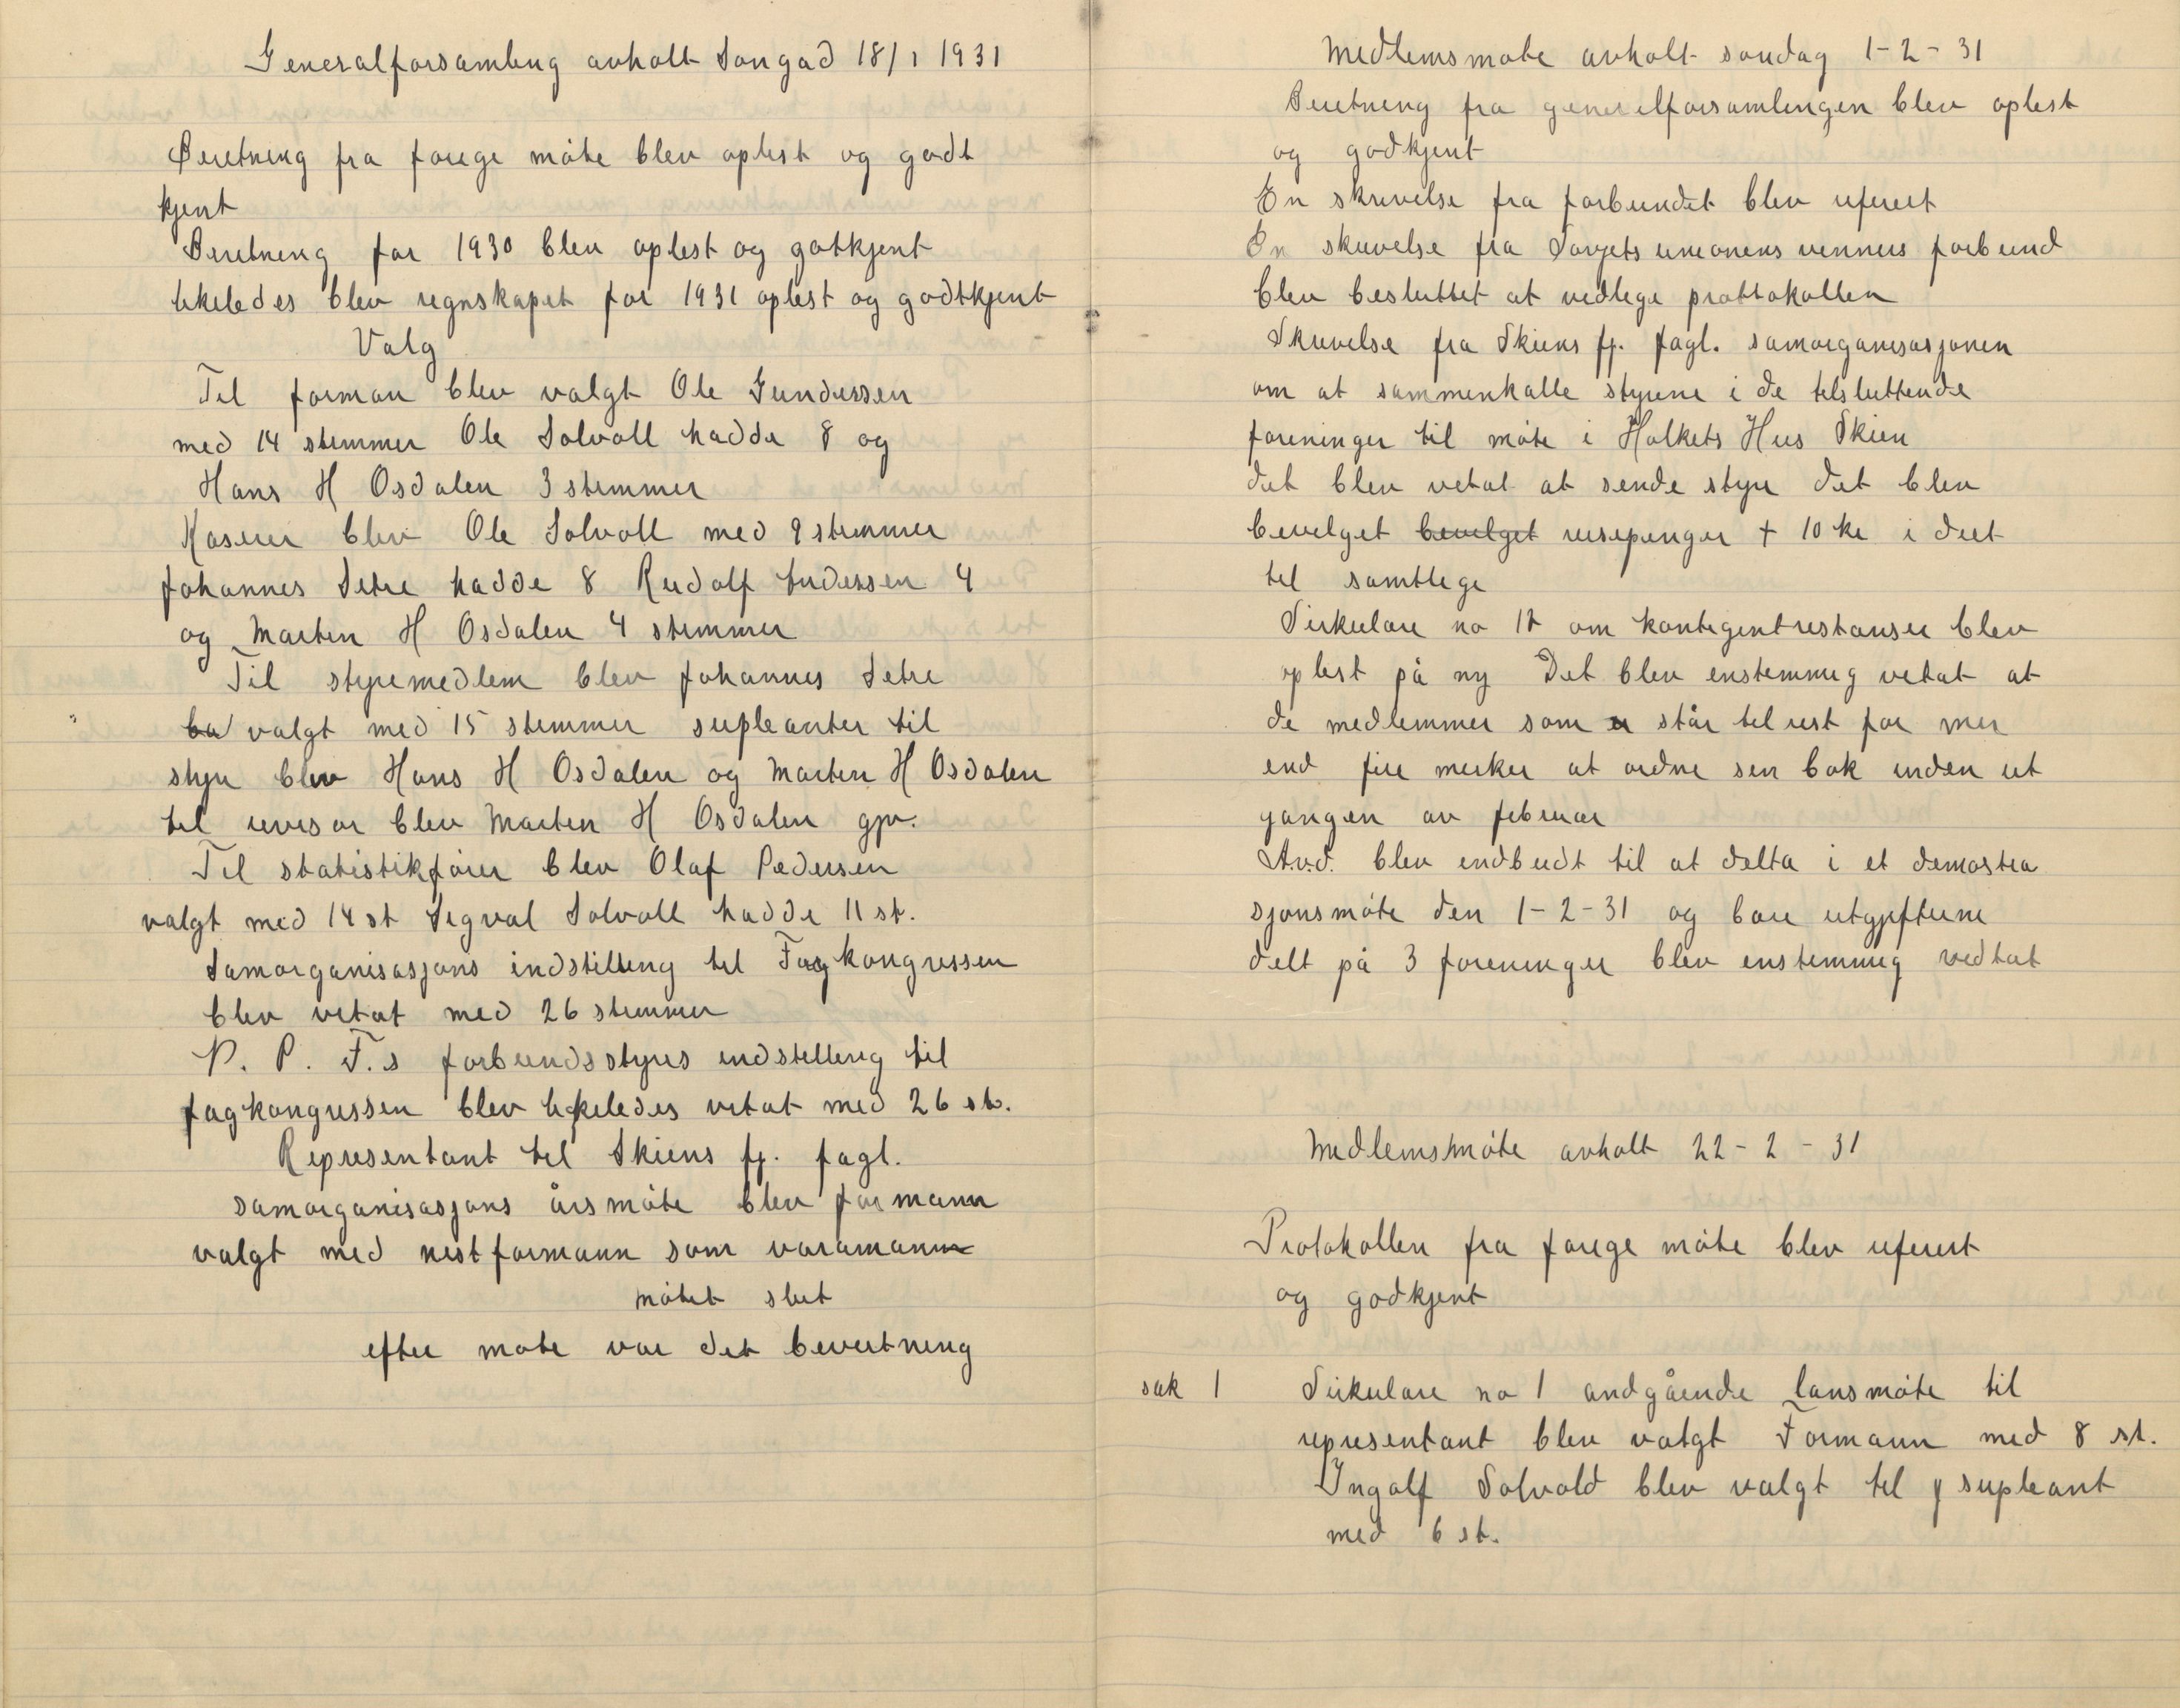 Generalforsamling avholt Songad 18/1 1931
Beretning fra forige møte blev oplest og godt
kjent
Beretning for 1930 blev oplest og gotkjent
likeledes blev regnskapet for 1931 oplest og godtkjent
Valg
Til forman blev valgt Ole Gundersen
med 14 stemmer Ole Solvoll hadde 8 og
Hans H Osdalen 3 stemmer
Kaserer blev Ole Solvoll med 9 stemmer
Johannes Setre hadde 8 Rudolf Andersen 4
og Martin H Osdalen 4 stemmer
Til styremedlem blev Johannes Setre
valgt med 15 stemmer supleanter til
styre blev Hans H Osdalen og Martin H Osdalen
til revisor blev Martin H Osdalen gjv.
Til statistikfører blev Olaf Pedersen
valgt med 14 st Sigval Solvoll hadde 11 st.
Samorganisasjons indstilling til Fagkongressen
blev vetat med 26 stemmer
N. P. F.s forbundsstyres indstilling til
fagkongressen blev likeledes vetat med 26 st.
Representant til Skiens fj. fagl.
samorganisasjons årsmøte blev formann
valgt med nestformann som varamann
møtet slut
efter møte var det bevertning
Medlemsmøte avholt søndag 1-2-31
Beretning fra generelforsamlingen blev oplest
og godkjent
En skrivelse fra forbundet blev referert
En skrivelse fra Sovjets unionens venners forbund
blev besluttet at vedlege prottokollen
Skrivelse fra Skiens fj. fagl. samorganisasjonen
om at sammenkalle styrene i de tilsluttende
foreninger til møte i Folkets Hus Skien
det blev vetat at sende styre det blev
bevelget bevilget reisepenger + 10 kr i diet
til samtlege
Sirkulære no 18 om kontigentrestanser blev
oplest på ny Det blev enstemmig vetat at
de medlemmer som står til rest for mer
end fire merker at ordne sen bok inden ut
gangen av februar
Avd. blev indbudt til at delta i et demostra
sjonsmøte den 1-2-31 og bare utgjifterne
delt på 3 foreninger blev enstemmig vedtat
Medlemsmøte avholt 22-2-31
Protokollen fra forige møte blev referert
og godkjent
sak 1 Sirkulære no 1 andgående lansmøte til
representant blev valgt Formann med 8 st.
Ingolf Solvold blev valgt til supleant
med 6 st.